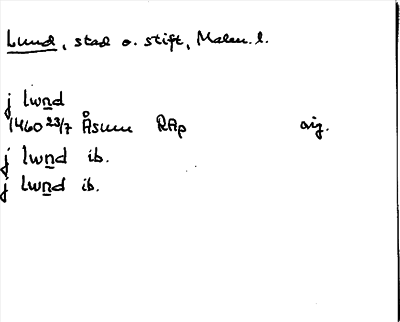 Lund, stad o. stift, Malm. l.
j lwnd
1460 23/7 Åsum RAp orig.
j lwnd ib.
j lwnd ib.